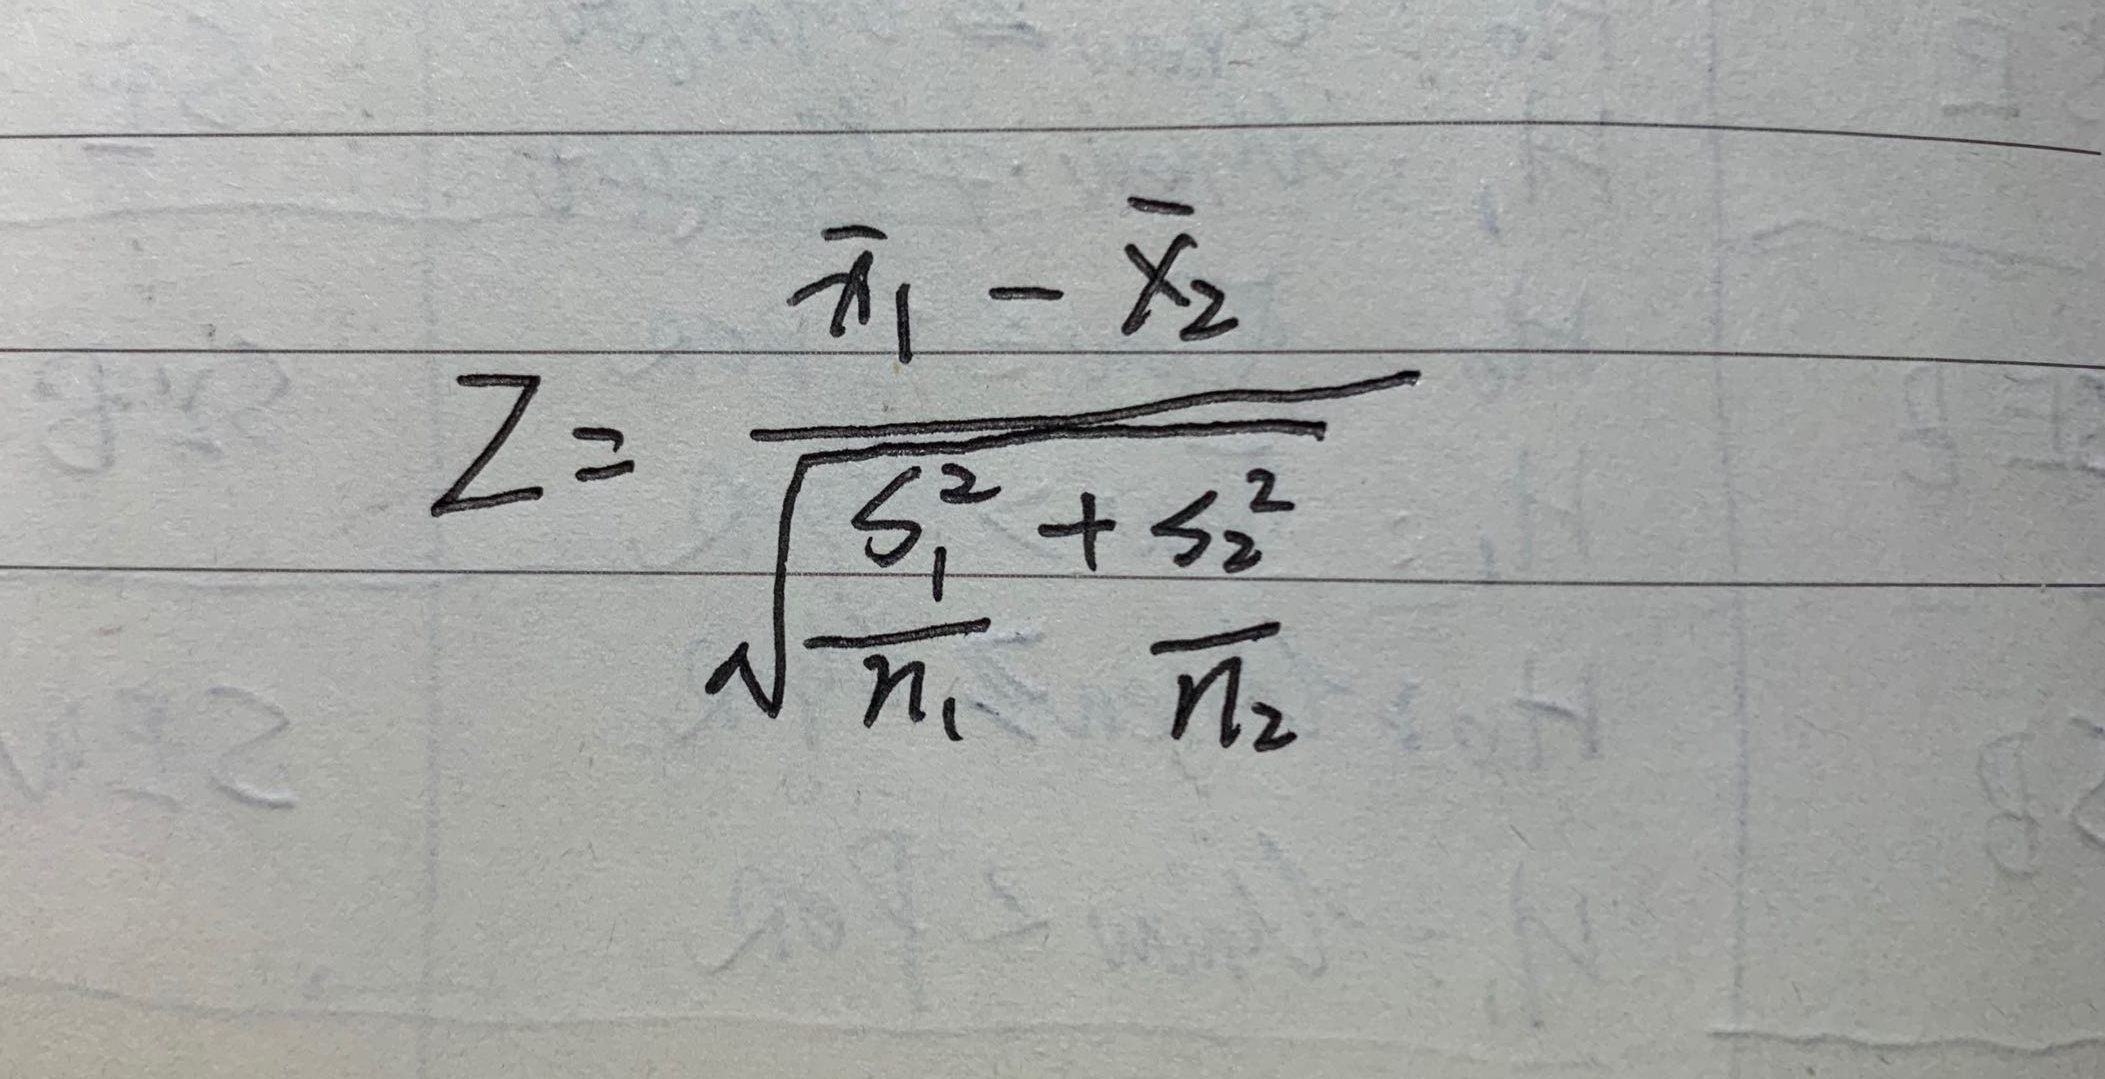 Z = (x̄₁ - x̄₂) / √(S₁²/n₁ + S₂²/n₂)